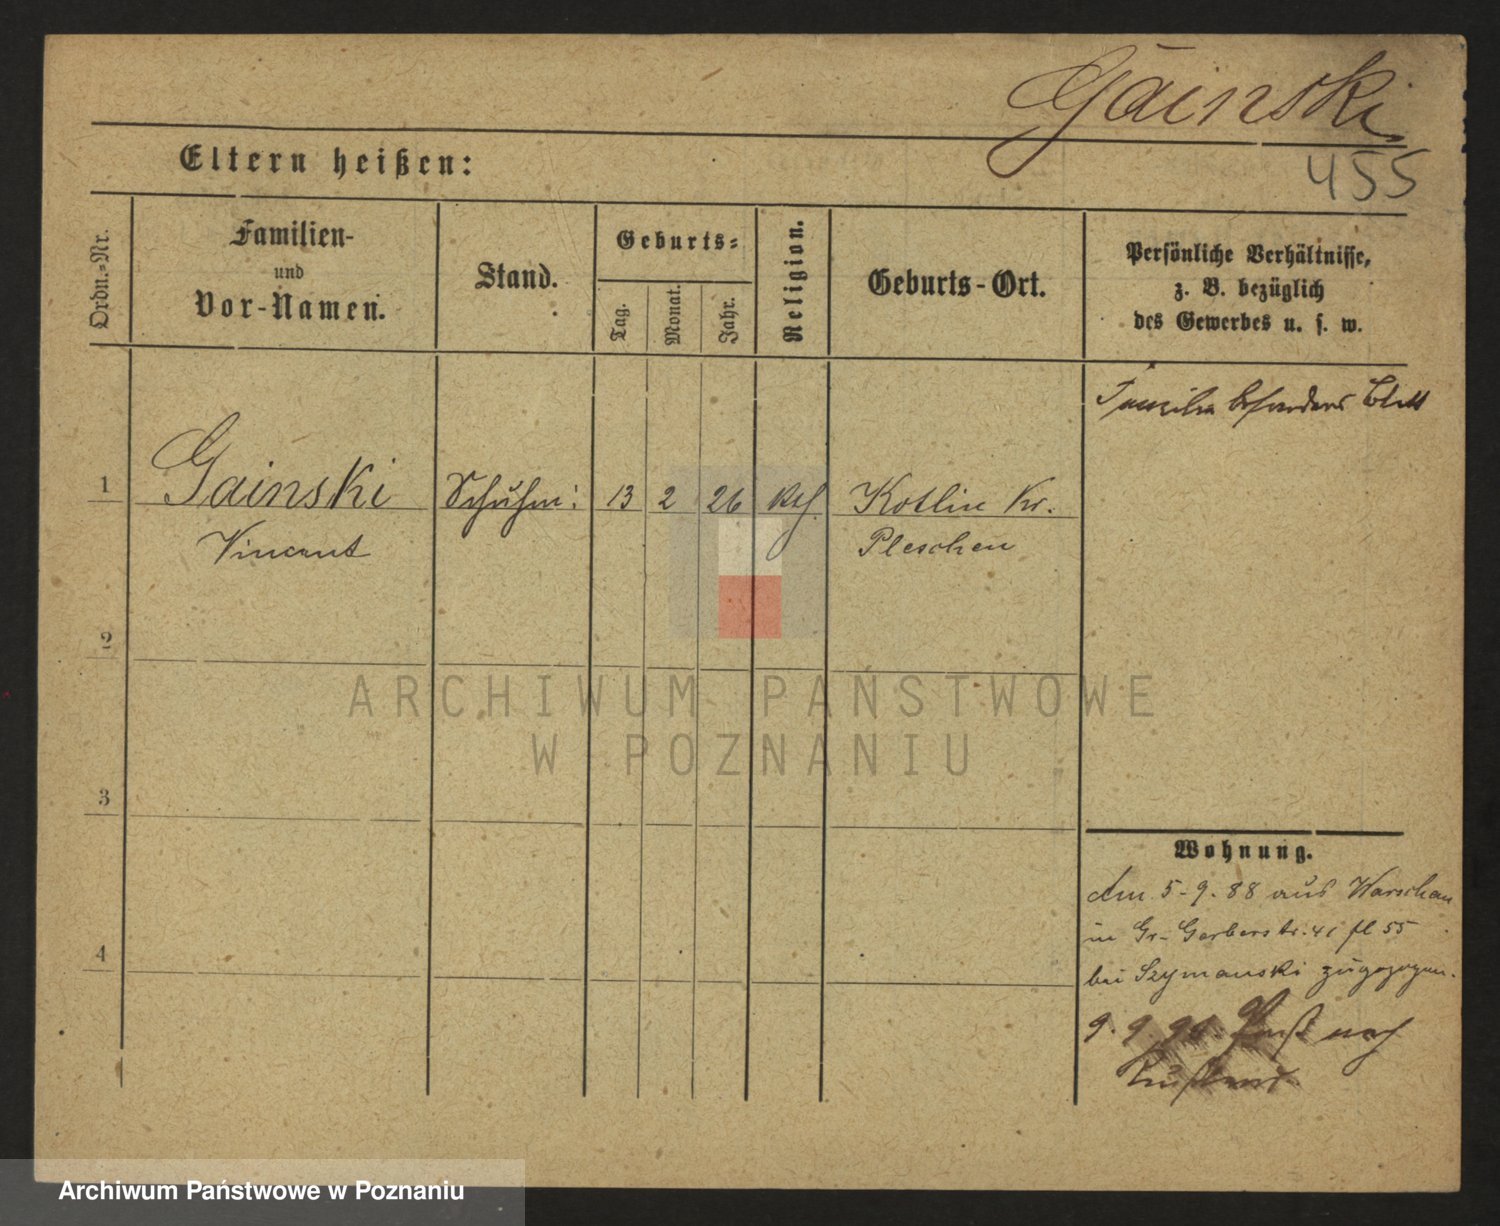 Gainski
455
Eltern heißen:
Ordn.-Nr.
Familien-
und
Vor-Namen.
Stand.
Geburts-
Tag.
Monat.
Jahr.
Religion.
Geburts-Ort.
Persönliche Verhältnisse,
z. B. bezüglich
des Gewerbes u. s. w.
Familie besonderes Blatt
1
Gainski
Schuhm:
13
2
26
kth.
Kotlin Kr.
Vincent
Pleschen
2
3
4
ARCHIWUM PAŃSTWOWE
W POZNANIU
Wohnung.
Am 5-9.88 aus Warschau
in Gr. Gerberstr. 41 fl 55
bei Szymanski zugezogen.
9. 9. nach
Rußland.
Archiwum Państwowe w Poznaniu